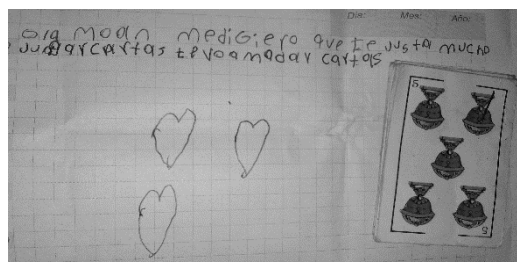 Día: Mes: Año:
ola moan medigiero que te justa mucho
jugar cartas tevoamadar cartas
5
5